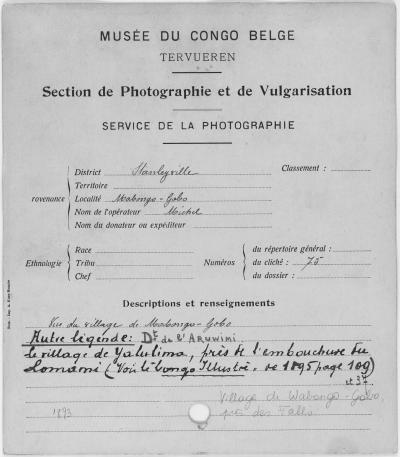 MUSÉE DU CONGO BELGE
TERVUEREN
Section de Photographie et de Vulgarisation
SERVICE DE LA PHOTOGRAPHIE
District Stanleyville Classement :
Territoire
rovenance Localité Mabongo-Gobo
Nom de l'opérateur Michel
Nom du donateur ou expéditeur
Race du répertoire général :
Ethnologie Tribu Numéros du cliché : 75
Chef du dossier :
Descriptions et renseignements
Vue du village de Mabongo-Gobo
Autre légende: Dt de l'Aruwimi
Le village de Yalulima, près de l'embouchure du
Lomami (Voir le Congo Illustré, de 1895 page 109)
et 37.
Village de Wabongo-Gobo,
près des Falls.
1893